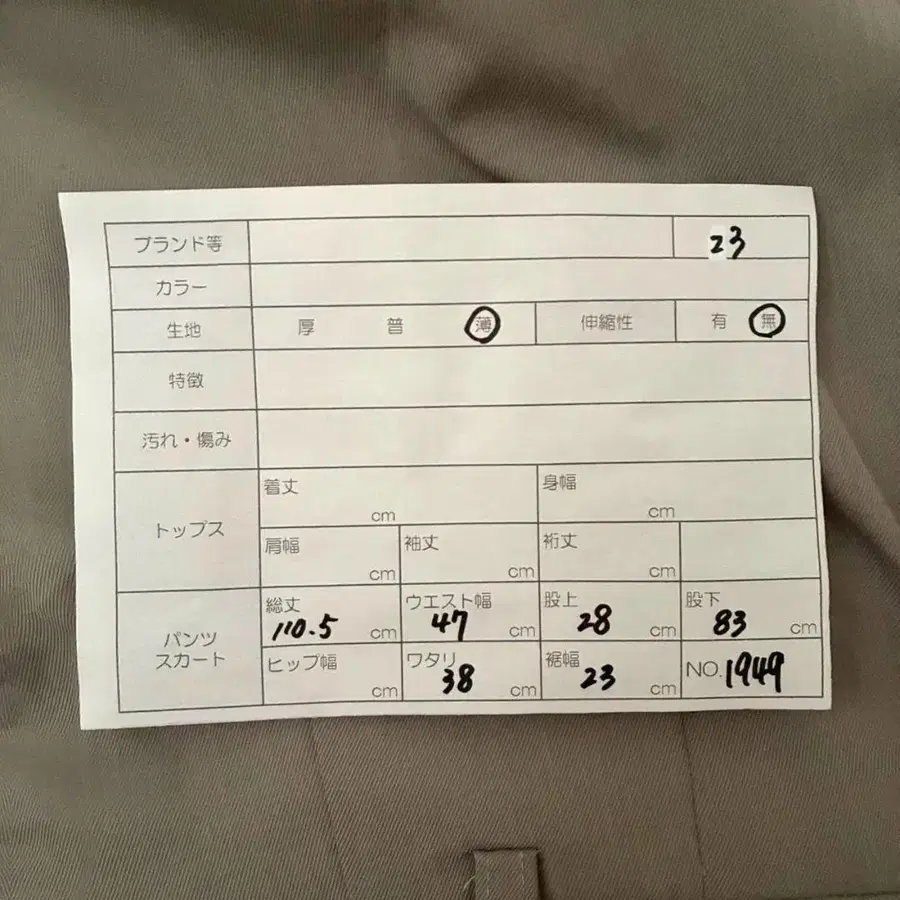 ブランド等 23
カラー
生地 厚 普 薄 伸縮性 有 無
特徴
汚れ・傷み
トップス
着丈 cm 身幅 cm
肩幅 cm 袖丈 cm 裄丈 cm
パンツ
スカート
総丈 110.5 cm ウエスト幅 47 cm 股上 28 cm 股下 83 cm
ヒップ幅 cm ワタリ 38 cm 裾幅 23 cm NO. 1949